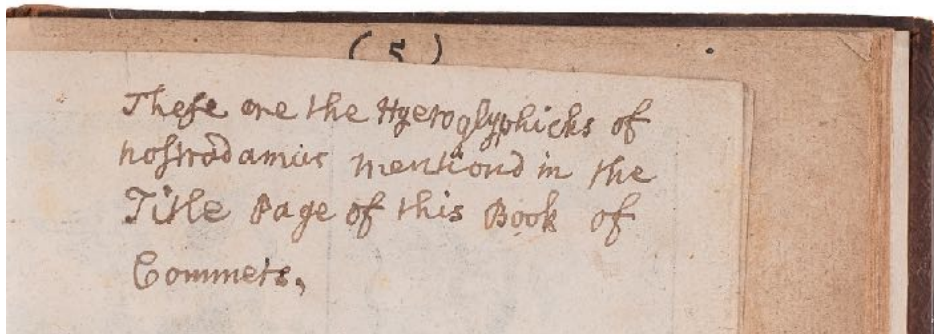 (5)
These are the Hyeroglyphicks of
nostrodamus mentiond in the
Title Page of this Book of
Commets.